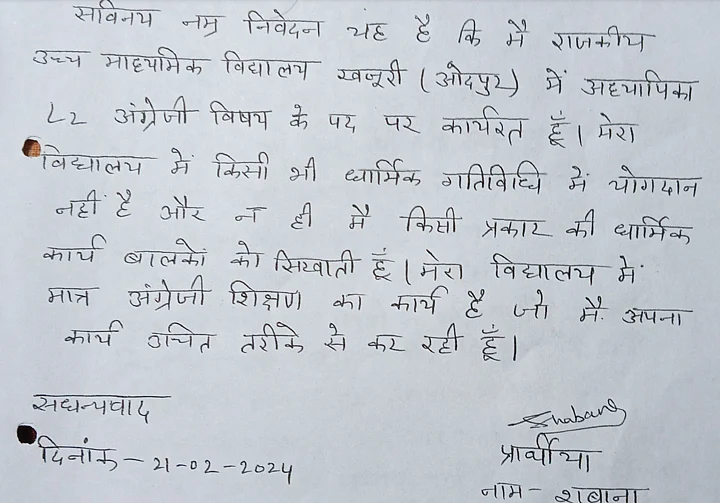 सविनय नम्र निवेदन यह है कि मै राजकीय
उच्च माध्यमिक विद्यालय खजूरी (ओदपुर) में अध्यापिका
L2 अंग्रेजी विषय के पद पर कार्यरत हूँ। मेरा
विद्यालय में किसी भी धार्मिक गतिविधि में योगदान
नहीं है और न ही मै किसी प्रकार की धार्मिक
कार्य बालकों को सिखाती हूँ। मेरा विद्यालय में
मात्र अंग्रेजी शिक्षण का कार्य है जो मै अपना
कार्य उचित तरीके से कर रही हूँ।
सधन्यवाद
Shabana
दिनांक - 21-02-2024
प्रार्थीया
नाम - शबाना